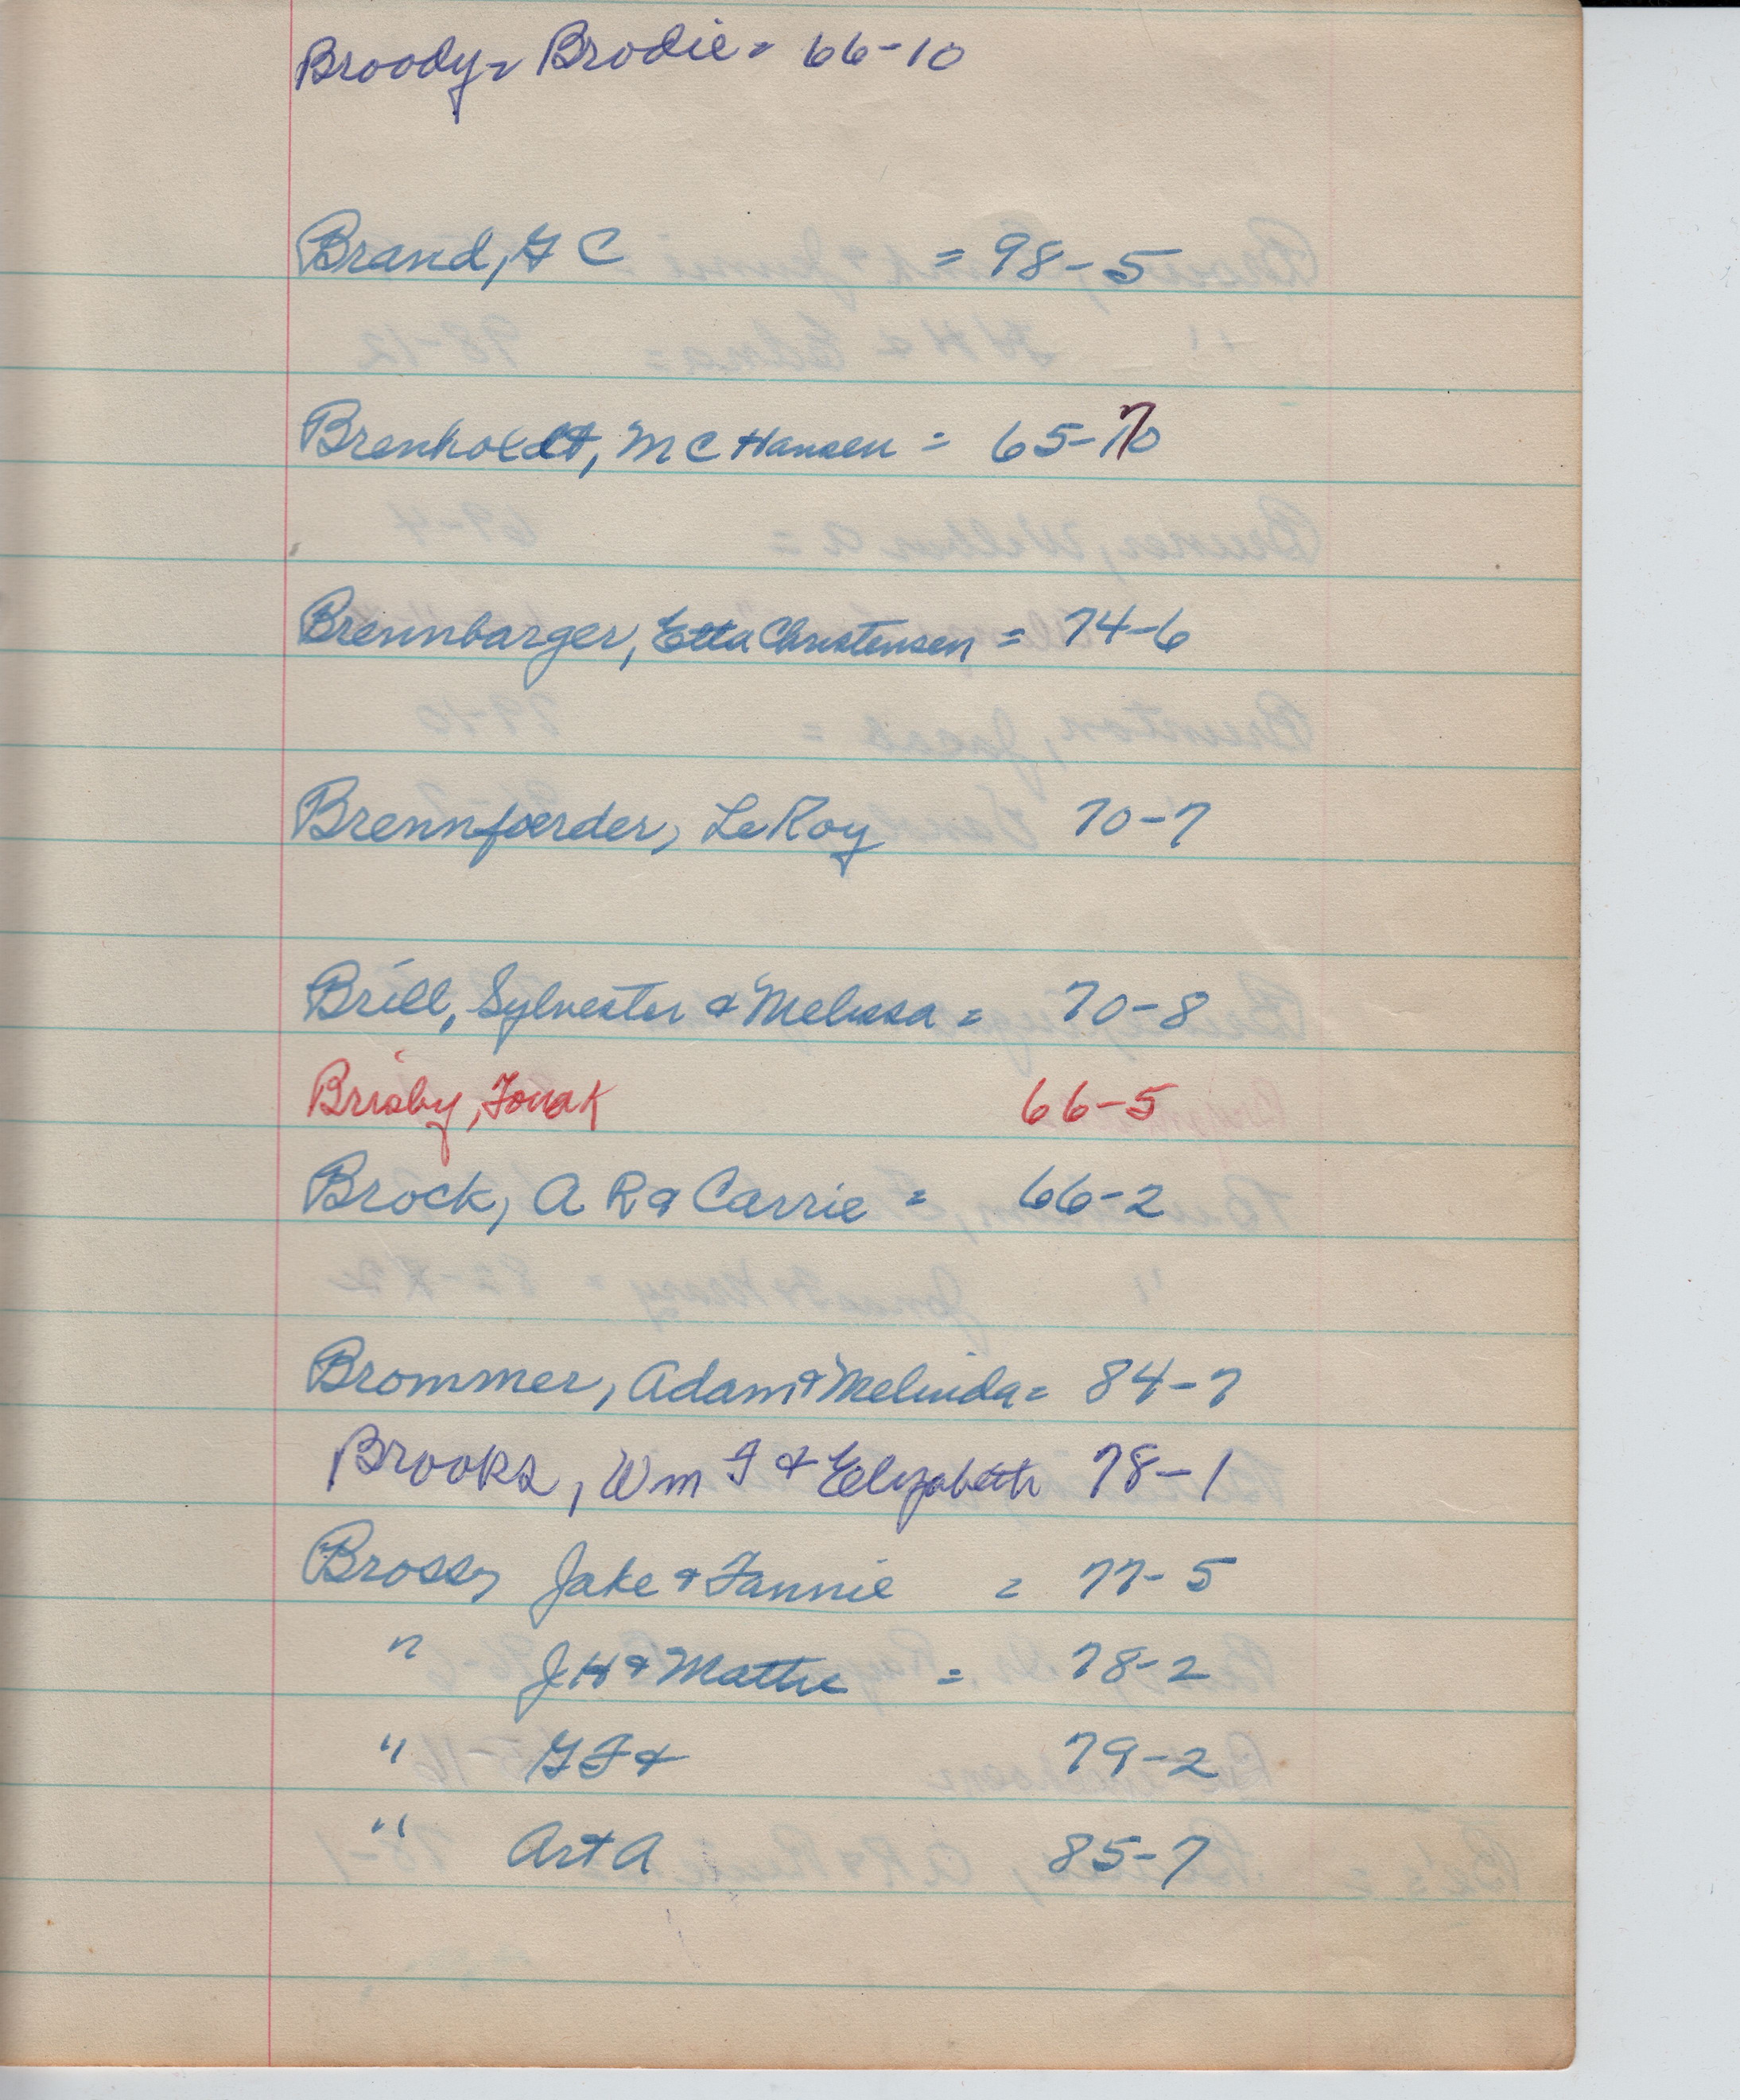 Broody = Brodie = 66-10
Brand, G C = 98-5
Brenholdt, M C Hansen = 65-70
Brennbarger, Etta Christensen = 74-6
Brennfoerder, LeRoy 70-7
Brill, Sylvester & Melissa = 70-8
Brisby, 66-5
Brock, A R & Carrie = 66-2
Brommer, Adam & Melinda = 84-7
Brooks, Wm F & Elizabeth 78-1
Bross, Jake & Fannie = 77-5
" J H & Mattie = 78-2
" G F & 79-2
" Art A 85-7